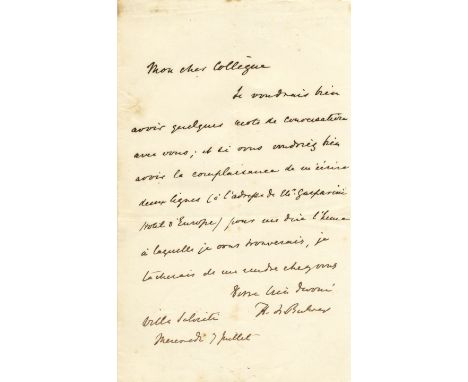 Mon cher Collègue
Je voudrais bien
avoir quelques mots de conversation
avec vous; et si vous voudriez bien
avoir la complaisance de m'écrire
deux lignes (à l'adresse de Gasparini
Hotel d'Europe) pour me dire l'heure
à laquelle je vous trouverais, je
tâcherais de me rendre chez vous
Votre très dévoué
Villa
Mercredi 7 Juillet